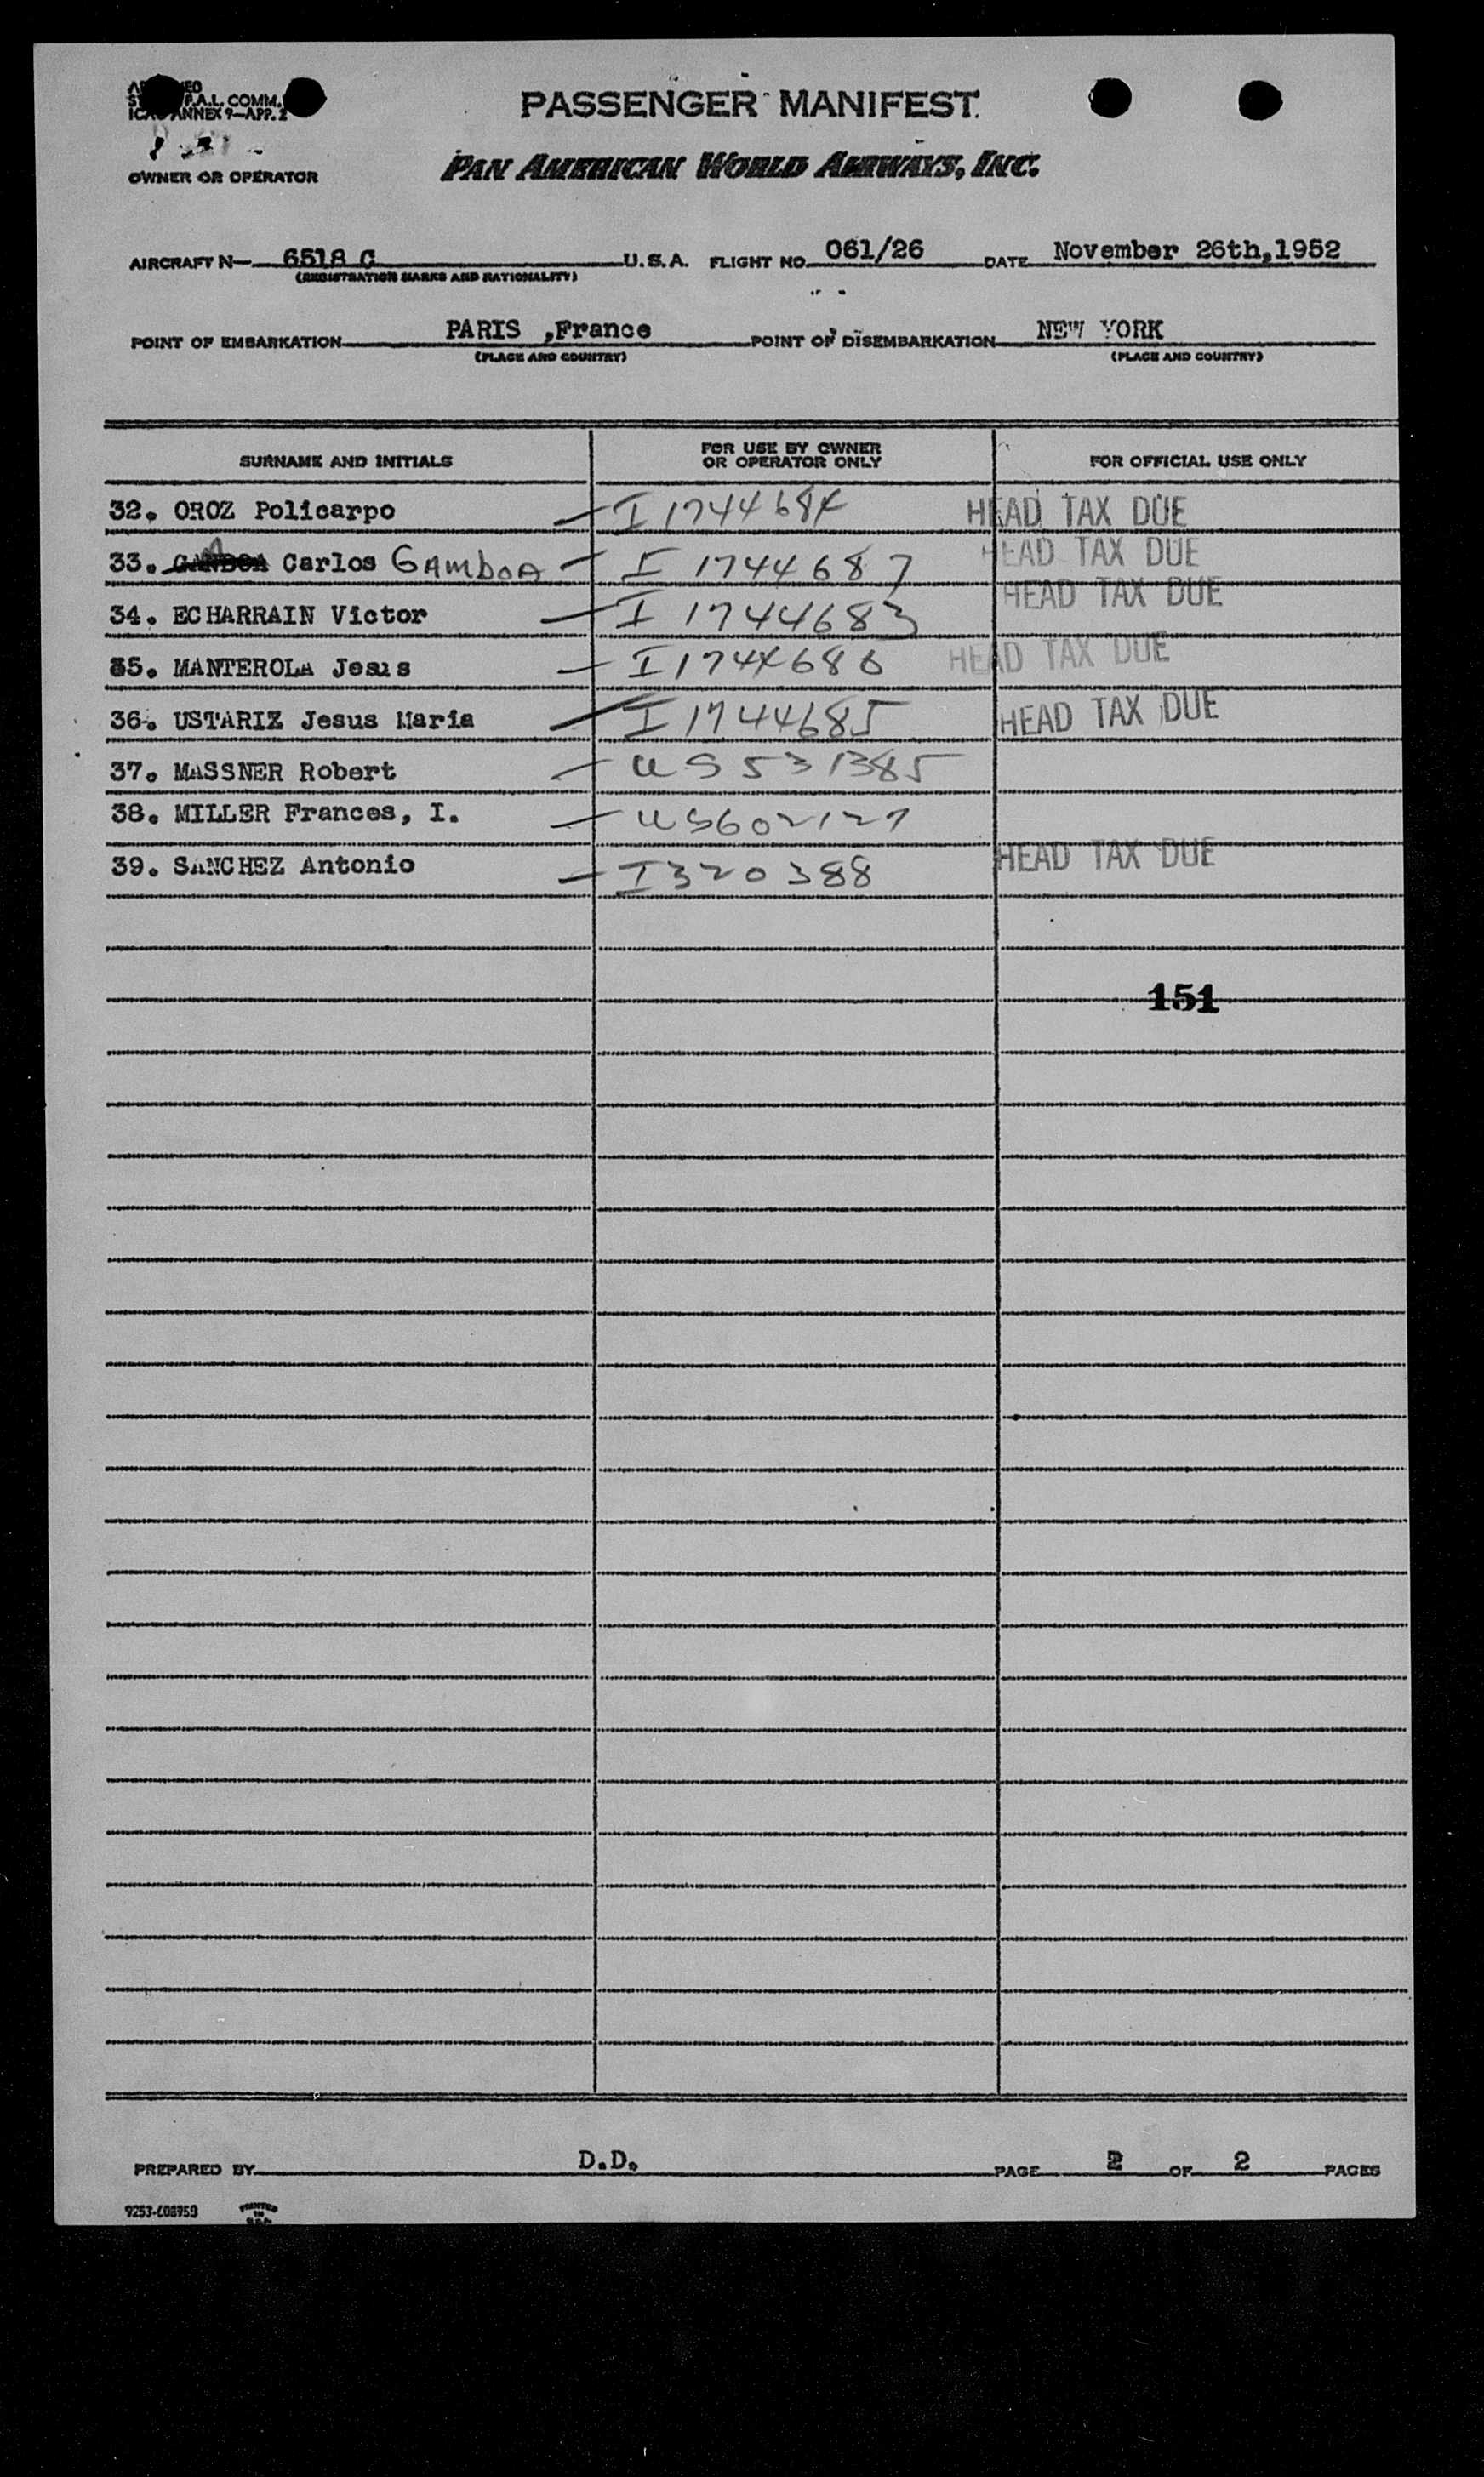 F.A.L. COMM.
ANNEX 9—APP. 2
OWNER OR OPERATOR
PASSENGER MANIFEST
PAN AMERICAN WORLD AIRWAYS, INC.
AIRCRAFT N— 6518 C U.S.A. FLIGHT NO. 061/26 DATE November 26th,1952
(REGISTRATION MARKS AND NATIONALITY)
POINT OF EMBARKATION PARIS ,France POINT OF DISEMBARKATION NEW YORK
(PLACE AND COUNTRY) (PLACE AND COUNTRY)
SURNAME AND INITIALS FOR USE BY OWNER OR OPERATOR ONLY FOR OFFICIAL USE ONLY
32. OROZ Policarpo — I 1744684 HEAD TAX DUE
33. Carlos GAMBOA — I 1744687 HEAD TAX DUE
34. ECHARRAIN Victor — I 1744683 HEAD TAX DUE
35. MANTEROLA Jesus — I 1744686 HEAD TAX DUE
36. USTARIZ Jesus Maria — I 1744685 HEAD TAX DUE
37. MASSNER Robert — US 531385
38. MILLER Frances, I. — US602127
39. SANCHEZ Antonio — I320388 HEAD TAX DUE
151
PREPARED BY D.D. PAGE 2 OF 2 PAGES
PRINTED IN U.S.A.